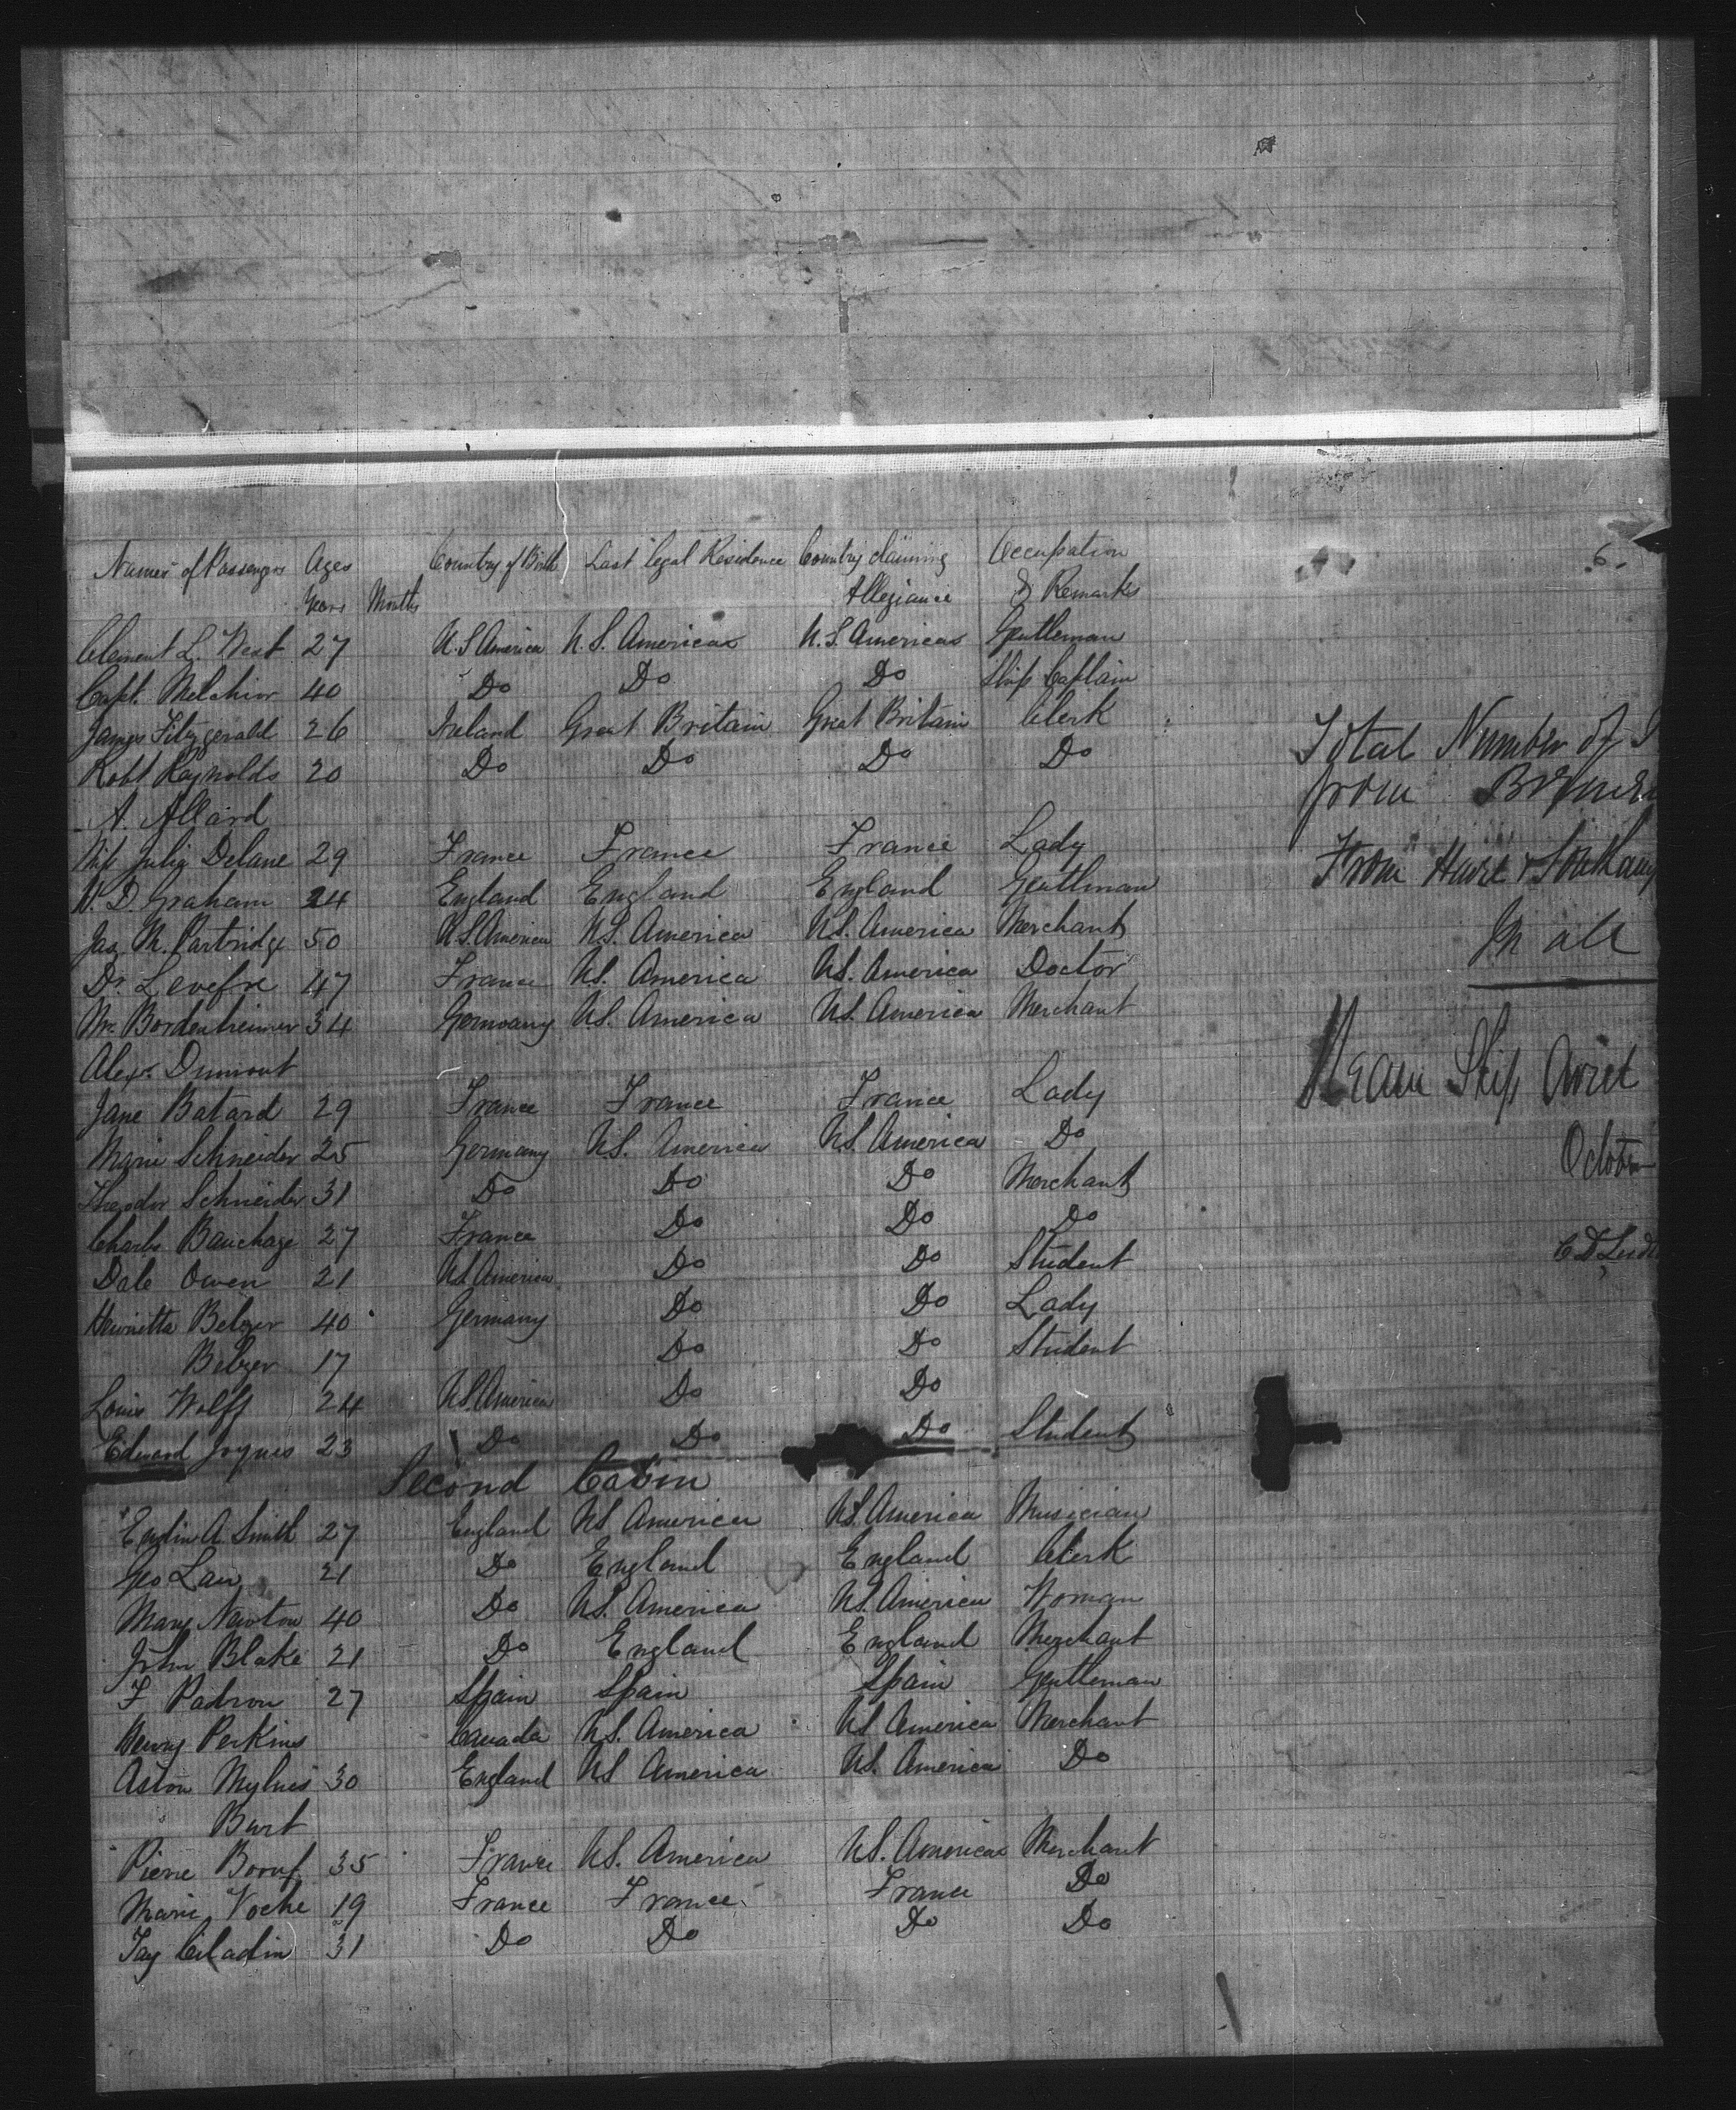 Names of Passengers Ages Country of Birth Last legal Residence Country claiming Occupation
Years Months Allegiance & Remarks
Clement L. West 27 U.S America U.S. America U.S. America Gentleman
Capt. Melchior 40 Do Do Do Ship Captain
James Fitzgerald 26 Ireland Great Britain Great Britain Clerk
Robt Raynolds 20 Do Do Do Do
A. Allard
Miss Julia Delane 29 France France France Lady
W. D. Graham 24 England England England Gentlman
Jas M. Partridge 50 U.S. America U.S. America U.S. America Merchant
Dr. Levefre 47 France U.S. America U.S. America Doctor
Mr. Bordenheimer 34 Germany U.S. America U.S. America Merchant
Alexr. Dumont
Jane Batard 29 France France France Lady
Marie Schneider 25 Germany U.S. America U.S. America Do
Theodor Schneider 31 Do Do Do Merchant
Charls Bauchage 27 France Do Do Do
Dale Owen 21 U.S. America Do Do Student
Henrietta Belzer 40 Germany Do Do Lady
Belzer 17 Do Do Student
Louis Wolff 24 U.S America Do Do
Edward Joynes 23 Do Do Do Student
Second Cabin
A. Smith 27 England U.S America U.S. America Musician
Geo Law 21 Do England England Clerk
Mary Newton 40 Do U.S. America U.S. America Woman
John Blake 21 Do England England Merchant
F Padron 27 Spain Spain Spain Gentleman
Henry Perkins Canada U.S. America U.S America Merchant
Aston Mylnes 30 England U.S America U.S. America Do
Burt
Pierre 35 France U.S. America U.S. America Merchant
Marie Voche 19 France France France Do
31 Do Do Do Do
6.
Total Number of
from
From Havre &
In all
Steam Ship Ariel
October
C D